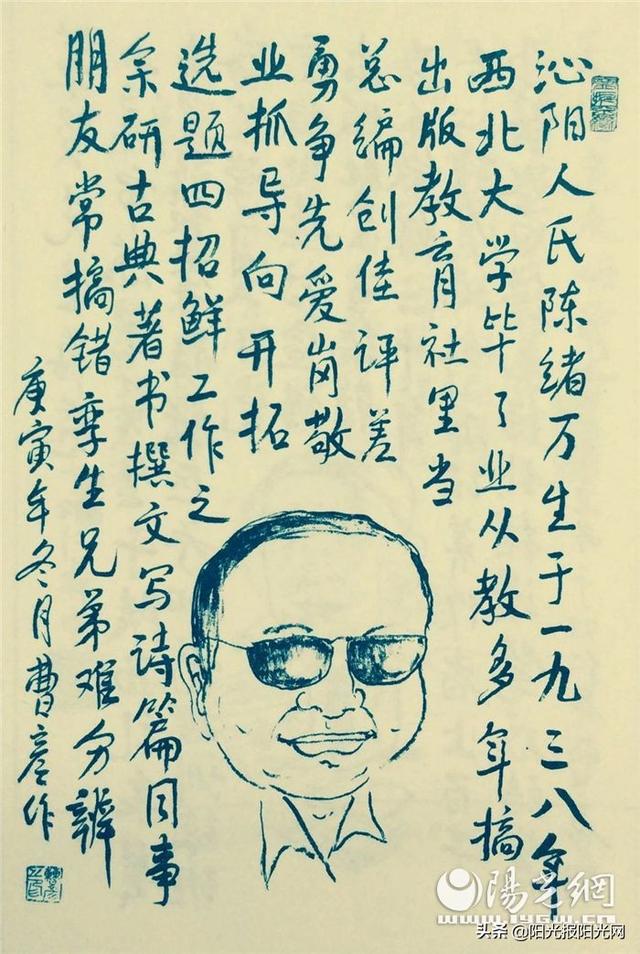 沁阳人氏陈绪万生于一九三八年
西北大学毕了业从教多年搞
出版教育社里当
总编创佳评差
勇争先爱岗敬
业抓导向开拓
选题四招鲜工作之
余研古典著书撰文写诗篇同事
朋友常搞错孪生兄弟难分辨
庚寅年冬月曹彦作
陽光網
www.iygw.cn
头条 @阳光报阳光网